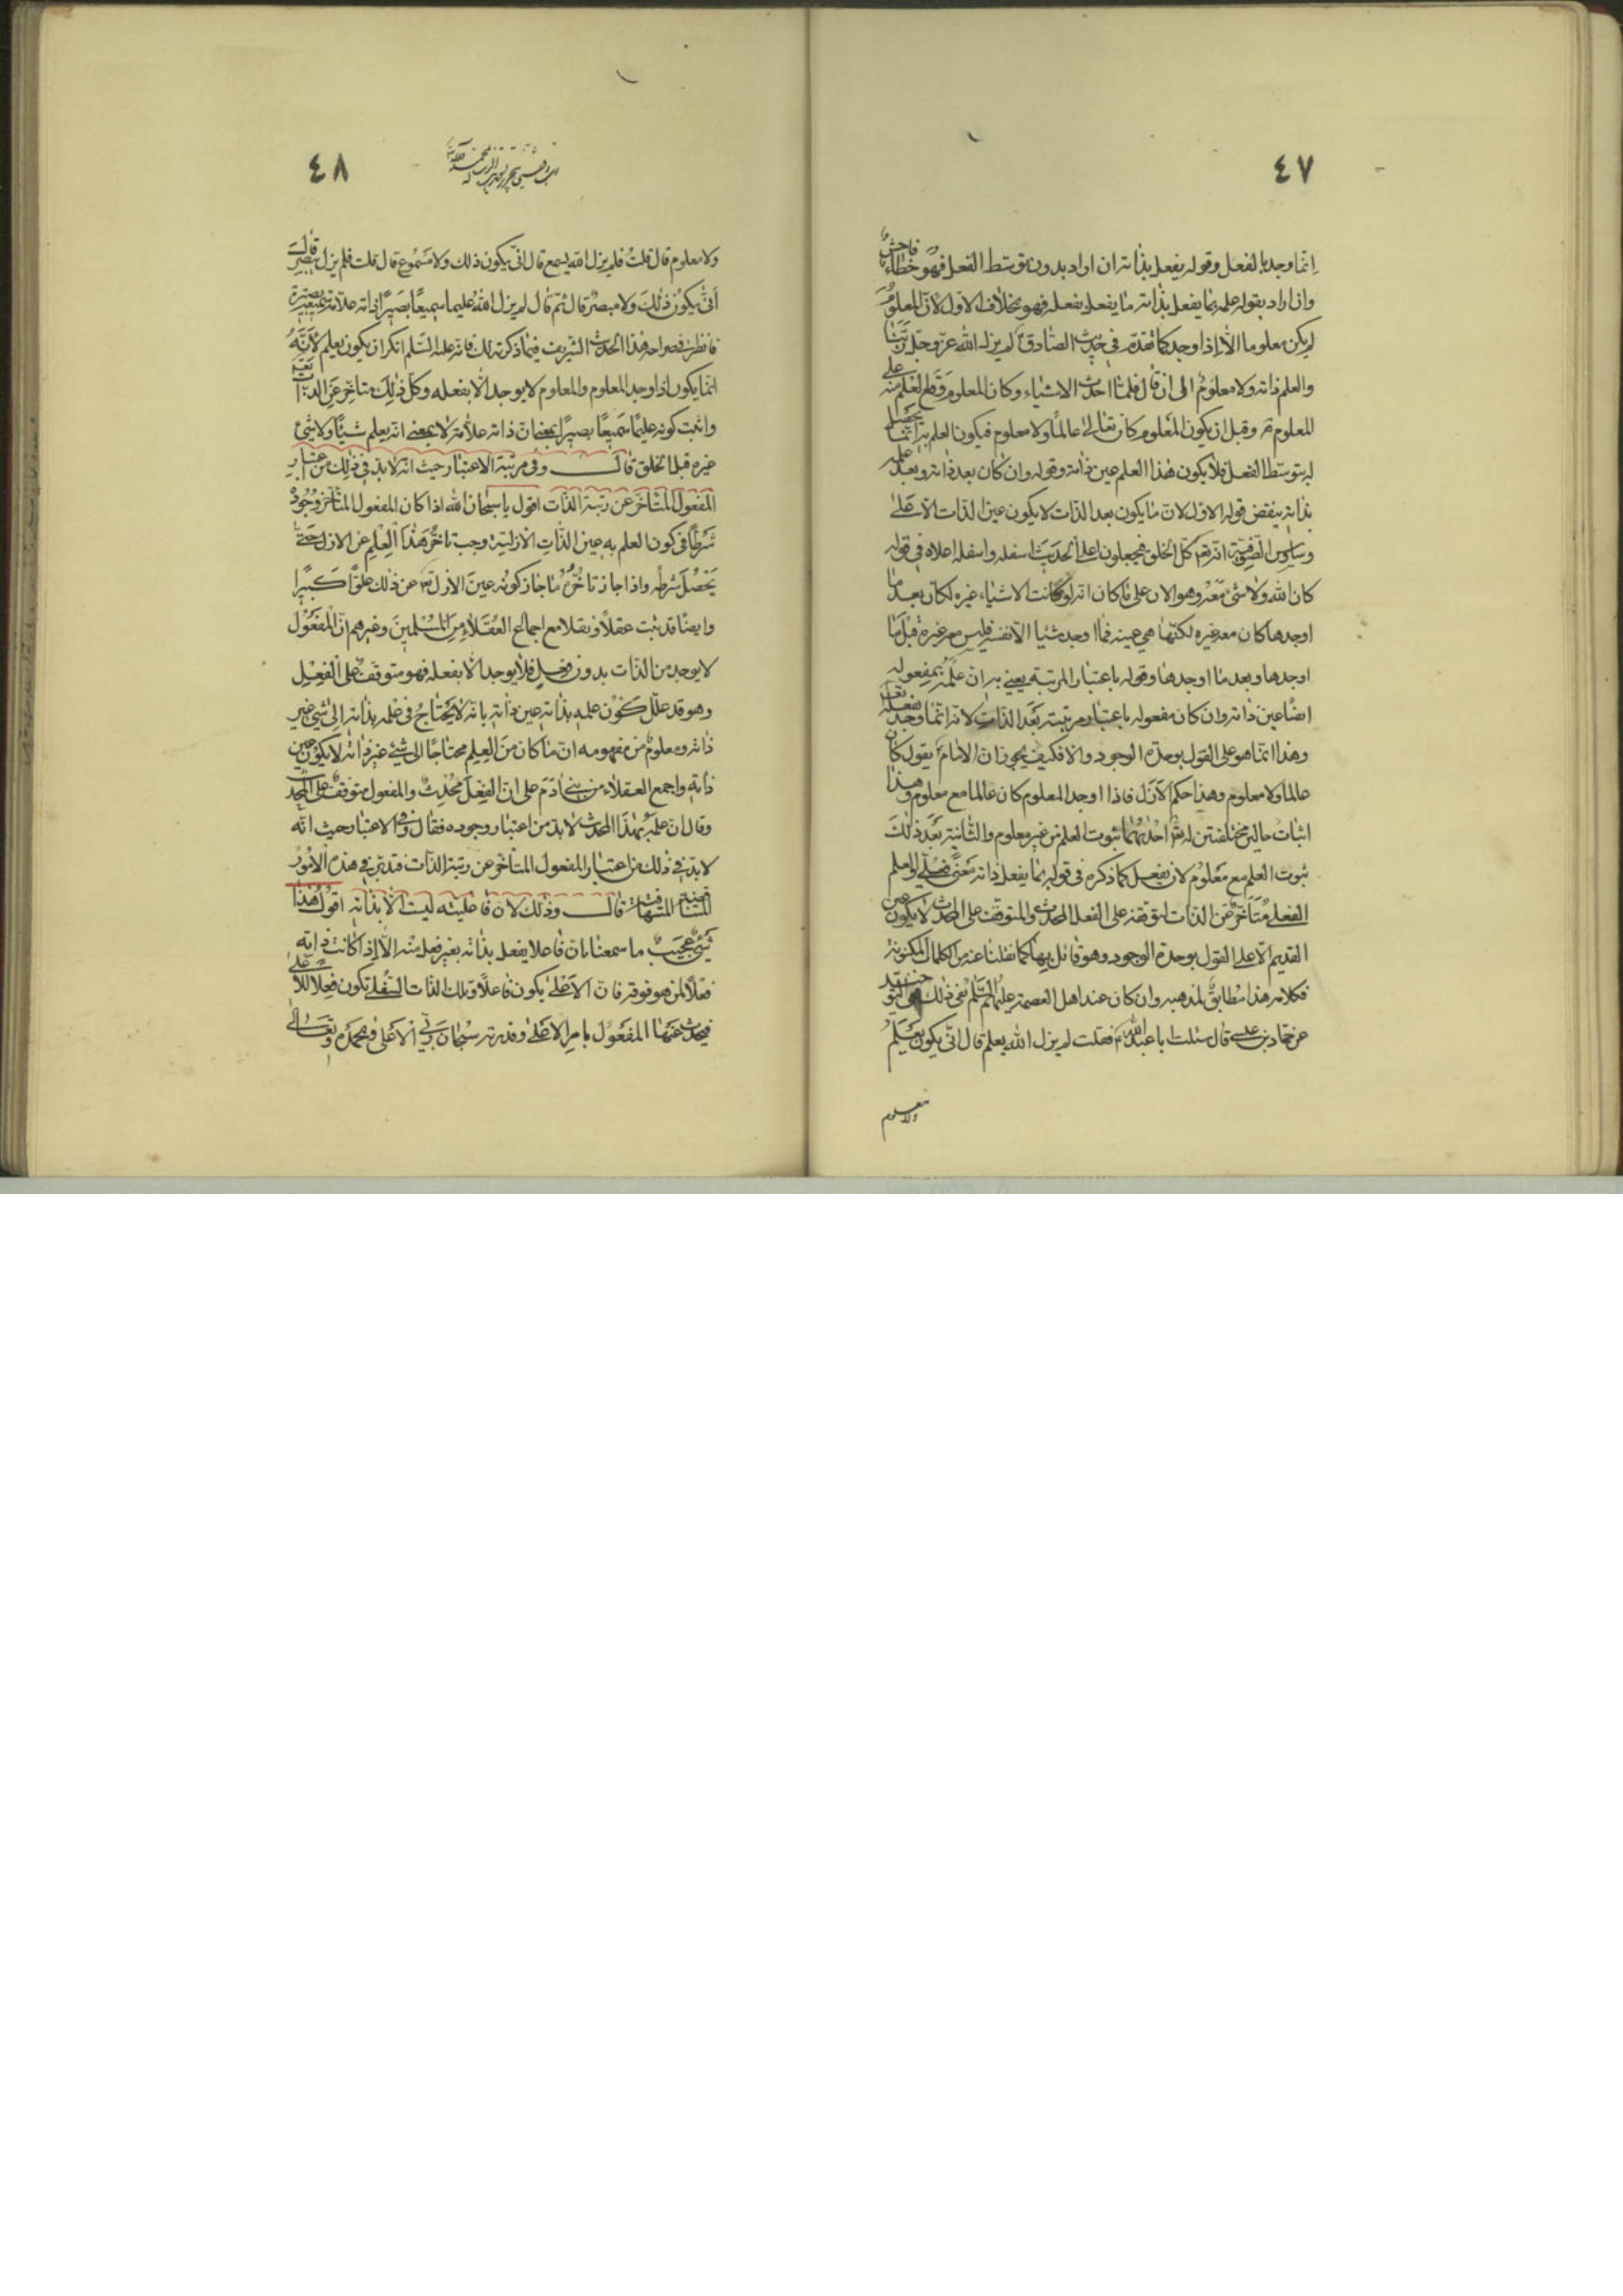 ٤٧
انما وجد بالفعل وقوله يفعل بذاته ان اراد بدون توسط الفعل فهو خطاء فاحش
وان اراد بقوله علمه بما يفعل بذاته ما يفعل بفعله فهو بخلاف الاول لان المعلوم
لم يكن معلوما الا اذا وجد كما تقدم في حديث الصادق ع لم يزل الله عز وجل ربنا
والعلم ذاته ولا معلوم الى ان قال فلما احدث الاشياء وكان المعلوم وقع العلم منه على
المعلوم ثم وقبل ان يكون المعلوم كان تعالى عالما ولا معلوم فيكون العلم به انما يحصل
له بتوسط الفعل فلا يكون هذا العلم عين ذاته وقوله وان كان بعد ذاته وبعد علمه
بذاته ينقض قوله الاول لان ما يكون بعد الذات لا يكون عين الذات الا على
وساوس الصوفية انه تعالى كل الخلق فيجعلون اعلا الحديث اسفله واسفله اعلاه في قوله
كان الله ولا شئ معه وهو الان على ما كان انه لو كانت الاشياء غيره لكان بعد ما
اوجدها كان معه غيره لكنها هي عينه فما اوجد شيئا الا نفسه فليس معه غيره قبل ما
اوجدها وبعد ما اوجدها وقوله باعتبار المرتبة يعني به ان علمه بمفعوله
ايضا عين ذاته وان كان مفعوله باعتبار مرتبته بعد الذات لانه انما وجد بفعله
وهذا انما هو على القول بوحدة الوجود والا فكيف يجوز ان الامام ع يقول كان
عالما ولا معلوم وهذا حكم الازل فاذا اوجد المعلوم كان عالما مع معلوم وهذا
اثبات حالين مختلفتين له تعالى احديهما ثبوت العلم من غير معلوم والثانية بعد ذلك
ثبوت العلم مع معلوم لان يفعل كما ذكره في قوله بما يفعل ذاته معنى فعلي والعلم
الفعلي متاخر عن الذات لتوقفه على الفعل المحدث والمتوقف على المحدث لا يكون عين
القديم الا على القول بوحدة الوجود وهو قائل بها كما نقلنا عنه من الكلمات المكنونة
فكلامه هذا مطابق لمذهبه وان كان عند اهل العصمة عليهم السلم نفي ذلك
عن حماد بن عيسى قال سئلت ابا عبد الله ع فقلت لم يزل الله يعلم قال انى يكون يعلم
ولا معلوم
٤٨
ولا معلوم قال قلت فلم يزل الله يسمع قال انى يكون ذلك ولا مسموع قال قلت فلم يزل يبصر قال
انى يكون ذلك ولا مبصر قال ثم قال لم يزل الله عليما سميعا بصيرا ذاته علامة سميعة بصيرة
فانظر في صراحة هذا الحديث الشريف فيما ذكرته لك فانه عليه السلم انكر ان يكون يعلم لانه
انما يكون اذا وجد المعلوم والمعلوم لا يوجد الا بفعله وكل ذلك متاخر عن الذات
واثبت كونه عليما سميعا بصيرا بمعنى ان ذاته علامة لا بمعنى انه يعلم شيئا ولا شئ
غيره قبل الخلق قال وفي مرتبة الاعتبار حيث انه لا بد في ذلك من اعتبار
المفعول المتاخر عن رتبة الذات اقول يا سبحان الله اذا كان المفعول المتاخر وجوده
شرطا في كون العلم به عين الذات الازلية وجب تاخر هذا العلم عن الازل حتى
يحصل شرطه واذا جاز تاخره ما جاز كونه عين الازل تعالى عن ذلك علوا كبيرا
وايضا قد ثبت عقلا ونقلا مع اجماع العقلاء من المسلمين وغيرهم ان المفعول
لا يوجد من الذات بدون فعل فلا يوجد الا بفعله فهو متوقف على الفعل
وهو قد علل كون علمه بذاته عين ذاته بانه لا يحتاج في علمه بذاته الى شئ غير
ذاته ومعلوم من مفهومه ان ما كان من العلم محتاجا الى شئ غير ذاته لا يكون عين
ذاته واجمع العقلاء من بني ادم على ان الفعل محدث والمفعول متوقف على المحدث
وقال ان علمه بهذا المحدث لا بد من اعتبار وجوده فقال وفي الاعتبار حيث انه
لا بد في ذلك من اعتبار المفعول المتاخر عن رتبة الذات فتدبر في هذه الامور
المتناقضة المتهافتة قال وذلك لان فاعليته ليست الا بذاته اقول هذا
شئ عجيب ما سمعنا بان فاعلا يفعل بذاته بغير فعل منه الا اذا كانت ذاته
فعلا لمن هو فوقه فان الاعلى يكون فاعلا وتلك الذات السفلى تكون فعلا للاعلى
فيحدث عنها المفعول بامر الاعلى وقدرته سبحان ربي الاعلى وبحمده وتعالى